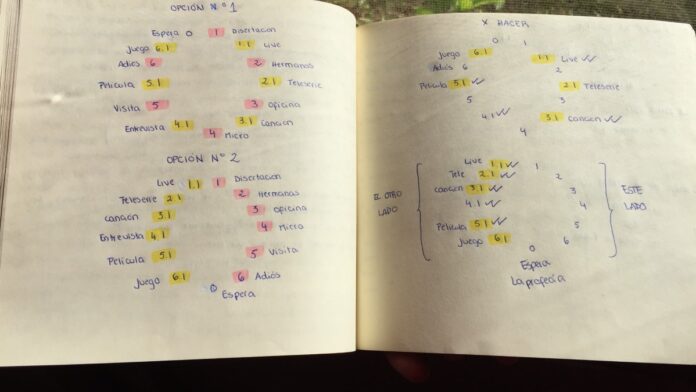 OPCIÓN Nº 1
Espera 0 1 Disertación
Juego 6.1 1.1 Live
Adiós 6 2 Hermanas
Película 5.1 2.1 Teleserie
Visita 5 3 oficina
Entrevista 4.1 3.1 canción
4 Micro
OPCIÓN Nº 2
Live 1.1 1 Disertación
Teleserie 2.1 2 Hermanas
canción 3.1 3 oficina
Entrevista 4.1 4 Micro
Película 5.1 5 Visita
Juego 6.1 6 Adiós
0 Espera
X HACER
0 1
Juego 6.1 1.1 Live
Adiós 6 2
Película 5.1 2.1 Teleserie
5 3
4.1 3.1 canción
4
Live 1.1 1
Tele 2.1 2
canción 3.1 3
4.1 4
Película 5.1 5
Juego 6.1 6
0
Espera
La profecía
EL OTRO
LADO
ESTE
LADO